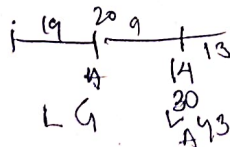 i 19 20 9 13
A 14
L G 30
L
A 43